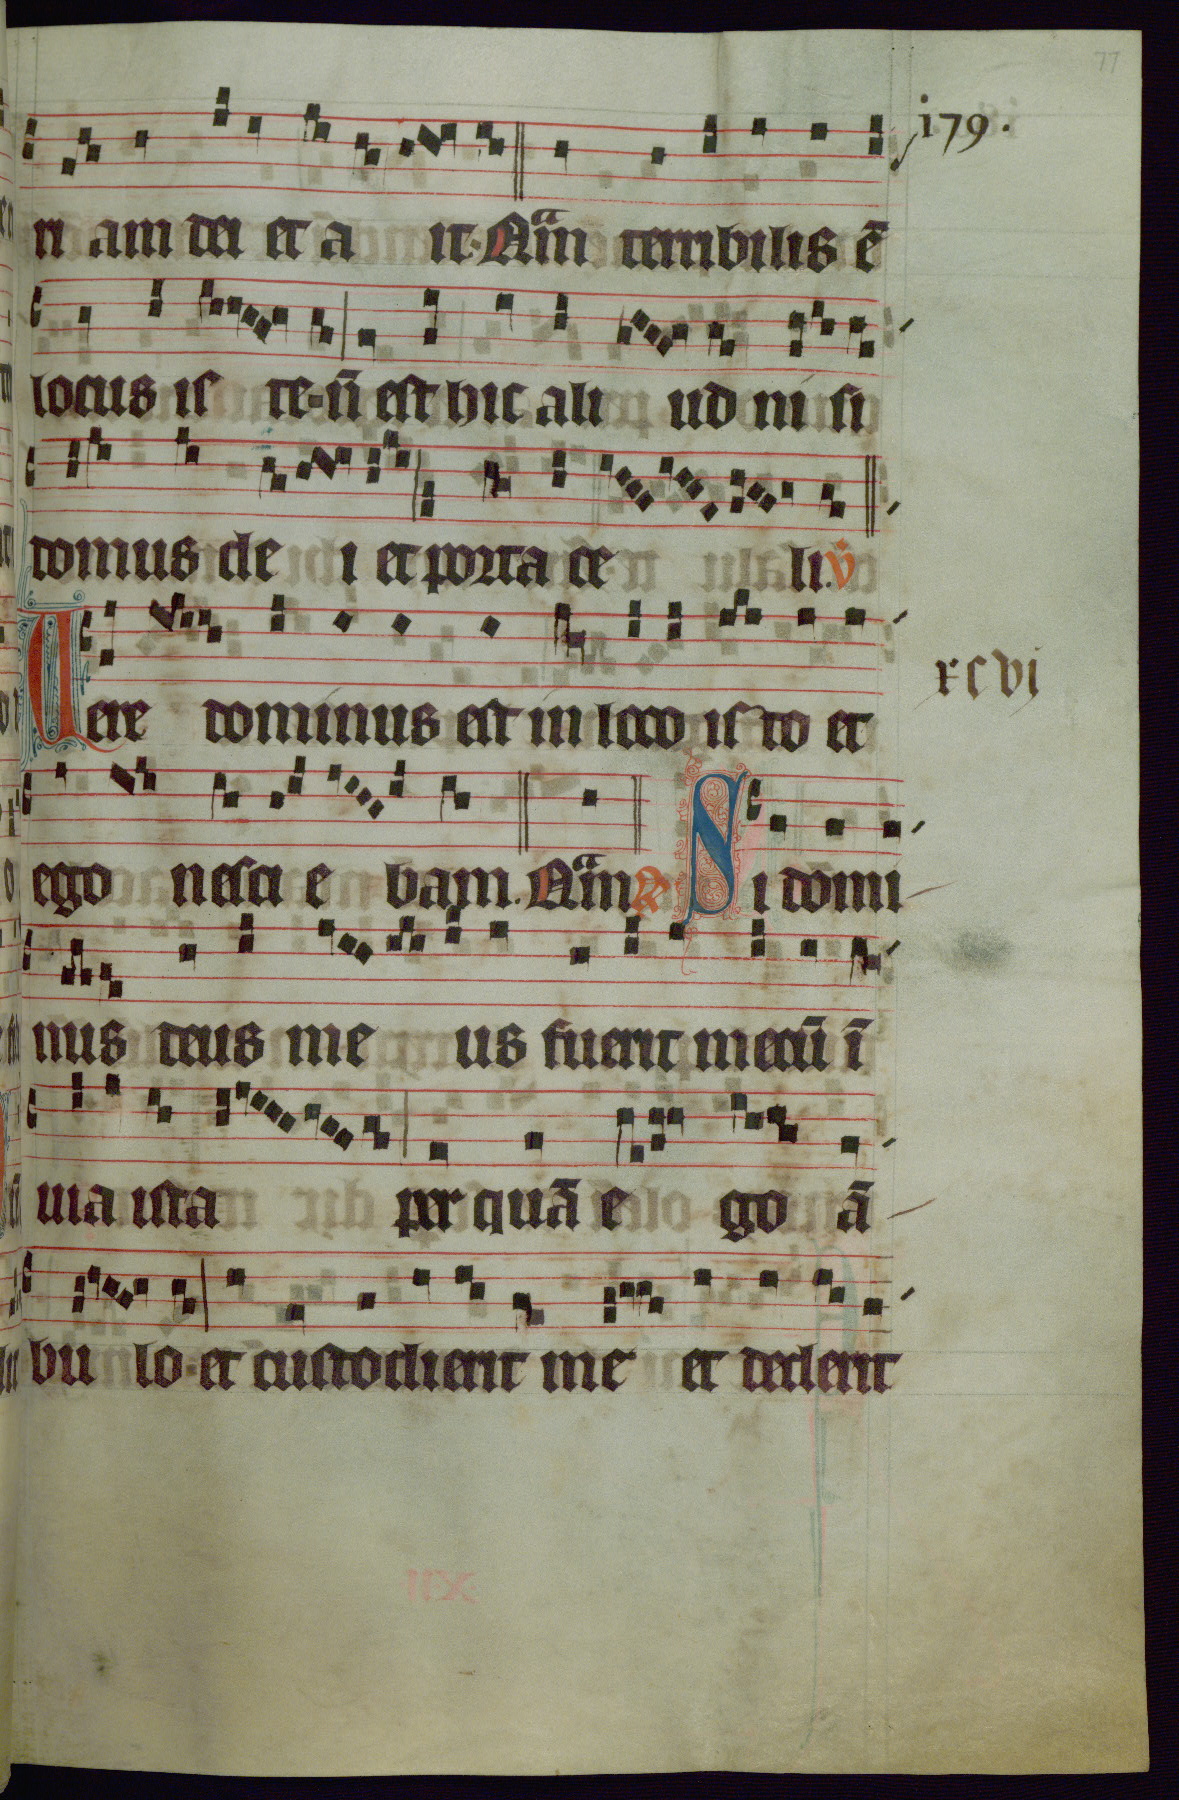 77
i79.
ri am dei et a it. Qam terribilis ē
locus is te-n̄ est hic ali ud ni si
domus de i et porta ce li. v̄
Vere dominus est in loco is to et
xcvi
ego nesci e bam. Qam R Si domi
nus deus me us fuerit mecū ī
uia ista per quā e go ā
bu lo et custodierit me et dederit